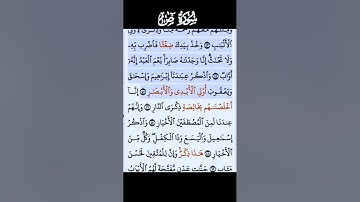 سُورَةُ صٓ
وَمِثْلَهُم مَّعَهُمْ رَحْمَةً مِّنَّا وَذِكْرَىٰ لِأُو۟لِى
ٱلْأَلْبَٰبِ ۝ وَخُذْ بِيَدِكَ ضِغْثًا فَٱضْرِب بِّهِۦ
وَلَا تَحْنَثْ إِنَّا وَجَدْنَٰهُ صَابِرًا نِّعْمَ ٱلْعَبْدُ إِنَّهُۥٓ
أَوَّابٌ ۝ وَٱذْكُرْ عِبَٰدَنَآ إِبْرَٰهِيمَ وَإِسْحَٰقَ
وَيَعْقُوبَ أُو۟لِى ٱلْأَيْدِى وَٱلْأَبْصَٰرِ ۝ إِنَّآ
أَخْلَصْنَٰهُم بِخَالِصَةٍ ذِكْرَى ٱلدَّارِ ۝ وَإِنَّهُمْ
عِندَنَا لَمِنَ ٱلْمُصْطَفَيْنَ ٱلْأَخْيَارِ ۝ وَٱذْكُرْ
إِسْمَٰعِيلَ وَٱلْيَسَعَ وَذَا ٱلْكِفْلِ وَكُلٌّ مِّنَ
ٱلْأَخْيَارِ ۝ هَٰذَا ذِكْرٌ وَإِنَّ لِلْمُتَّقِينَ لَحُسْنَ
مَـَٔابٍ ۝ جَنَّٰتِ عَدْنٍ مُّفَتَّحَةً لَّهُمُ ٱلْأَبْوَٰبُ